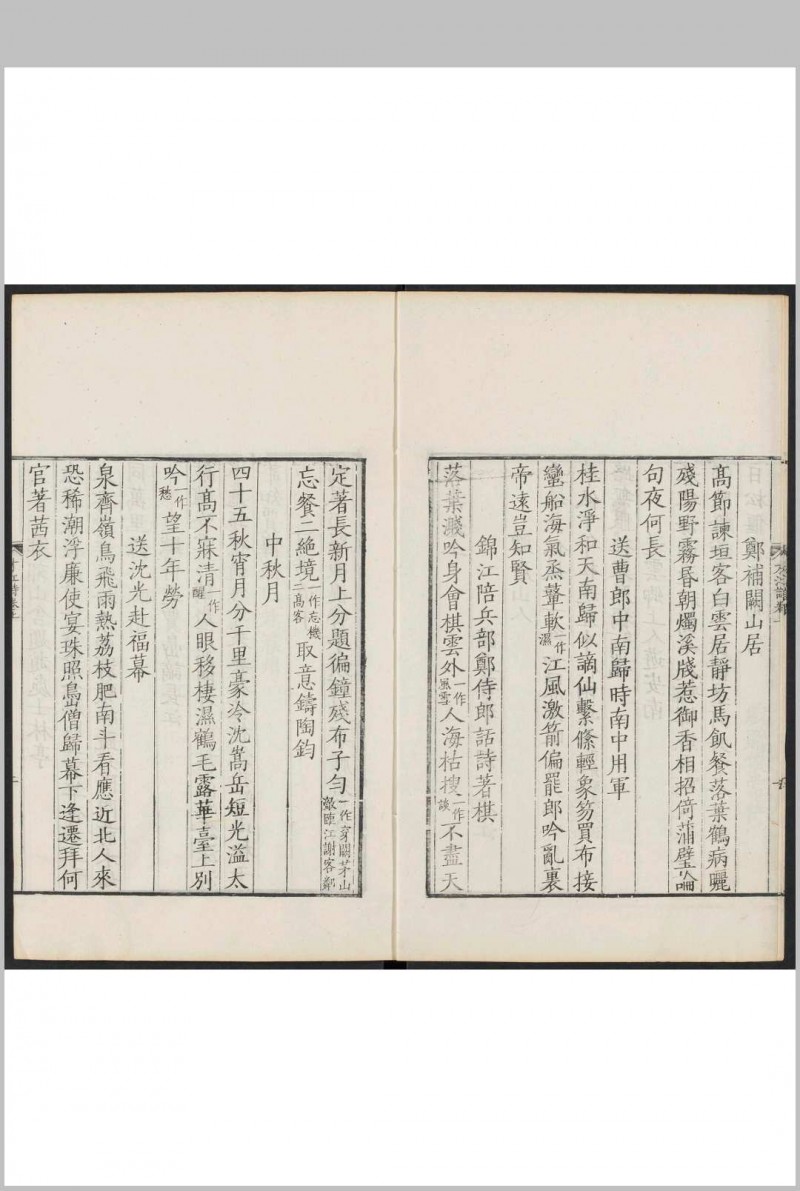 鄭補闕山居
高節諫垣客白雲居靜坊馬飢餐落葉鶴病曬
殘陽野霧昏朝燭溪牋惹御香相招倚蒲璧論
句夜何長
送曹郎中南歸時南中用軍
桂水淨和天南歸似謫仙繫絛輕象笏買布接
蠻船海氣烝鼙軟一作濕江風激箭偏罷郎吟亂裏
帝遠豈知賢
錦江陪兵部鄭侍郎話詩著棋
落葉濺吟身會棋雲外一作風雪人海枯搜一作不盡天
定著長新月上分題徧鐘殘布子勻一作穿闢茅山敵江謝客鄰
忘餐二絕境一作忘機二高客取意鑄陶鈞
中秋月
四十五秋宵月分千里豪冷沈嵩岳短光溢太
行高不寐清一作醒人眼移棲濕鶴毛露華臺上別
吟一作愁望十年勞
送沈光赴福幕
泉齊嶺鳥飛雨熱荔枝肥南斗看應近北人來
恐稀潮浮廉使宴珠照島僧歸幕下逢遷拜何
官著茜衣